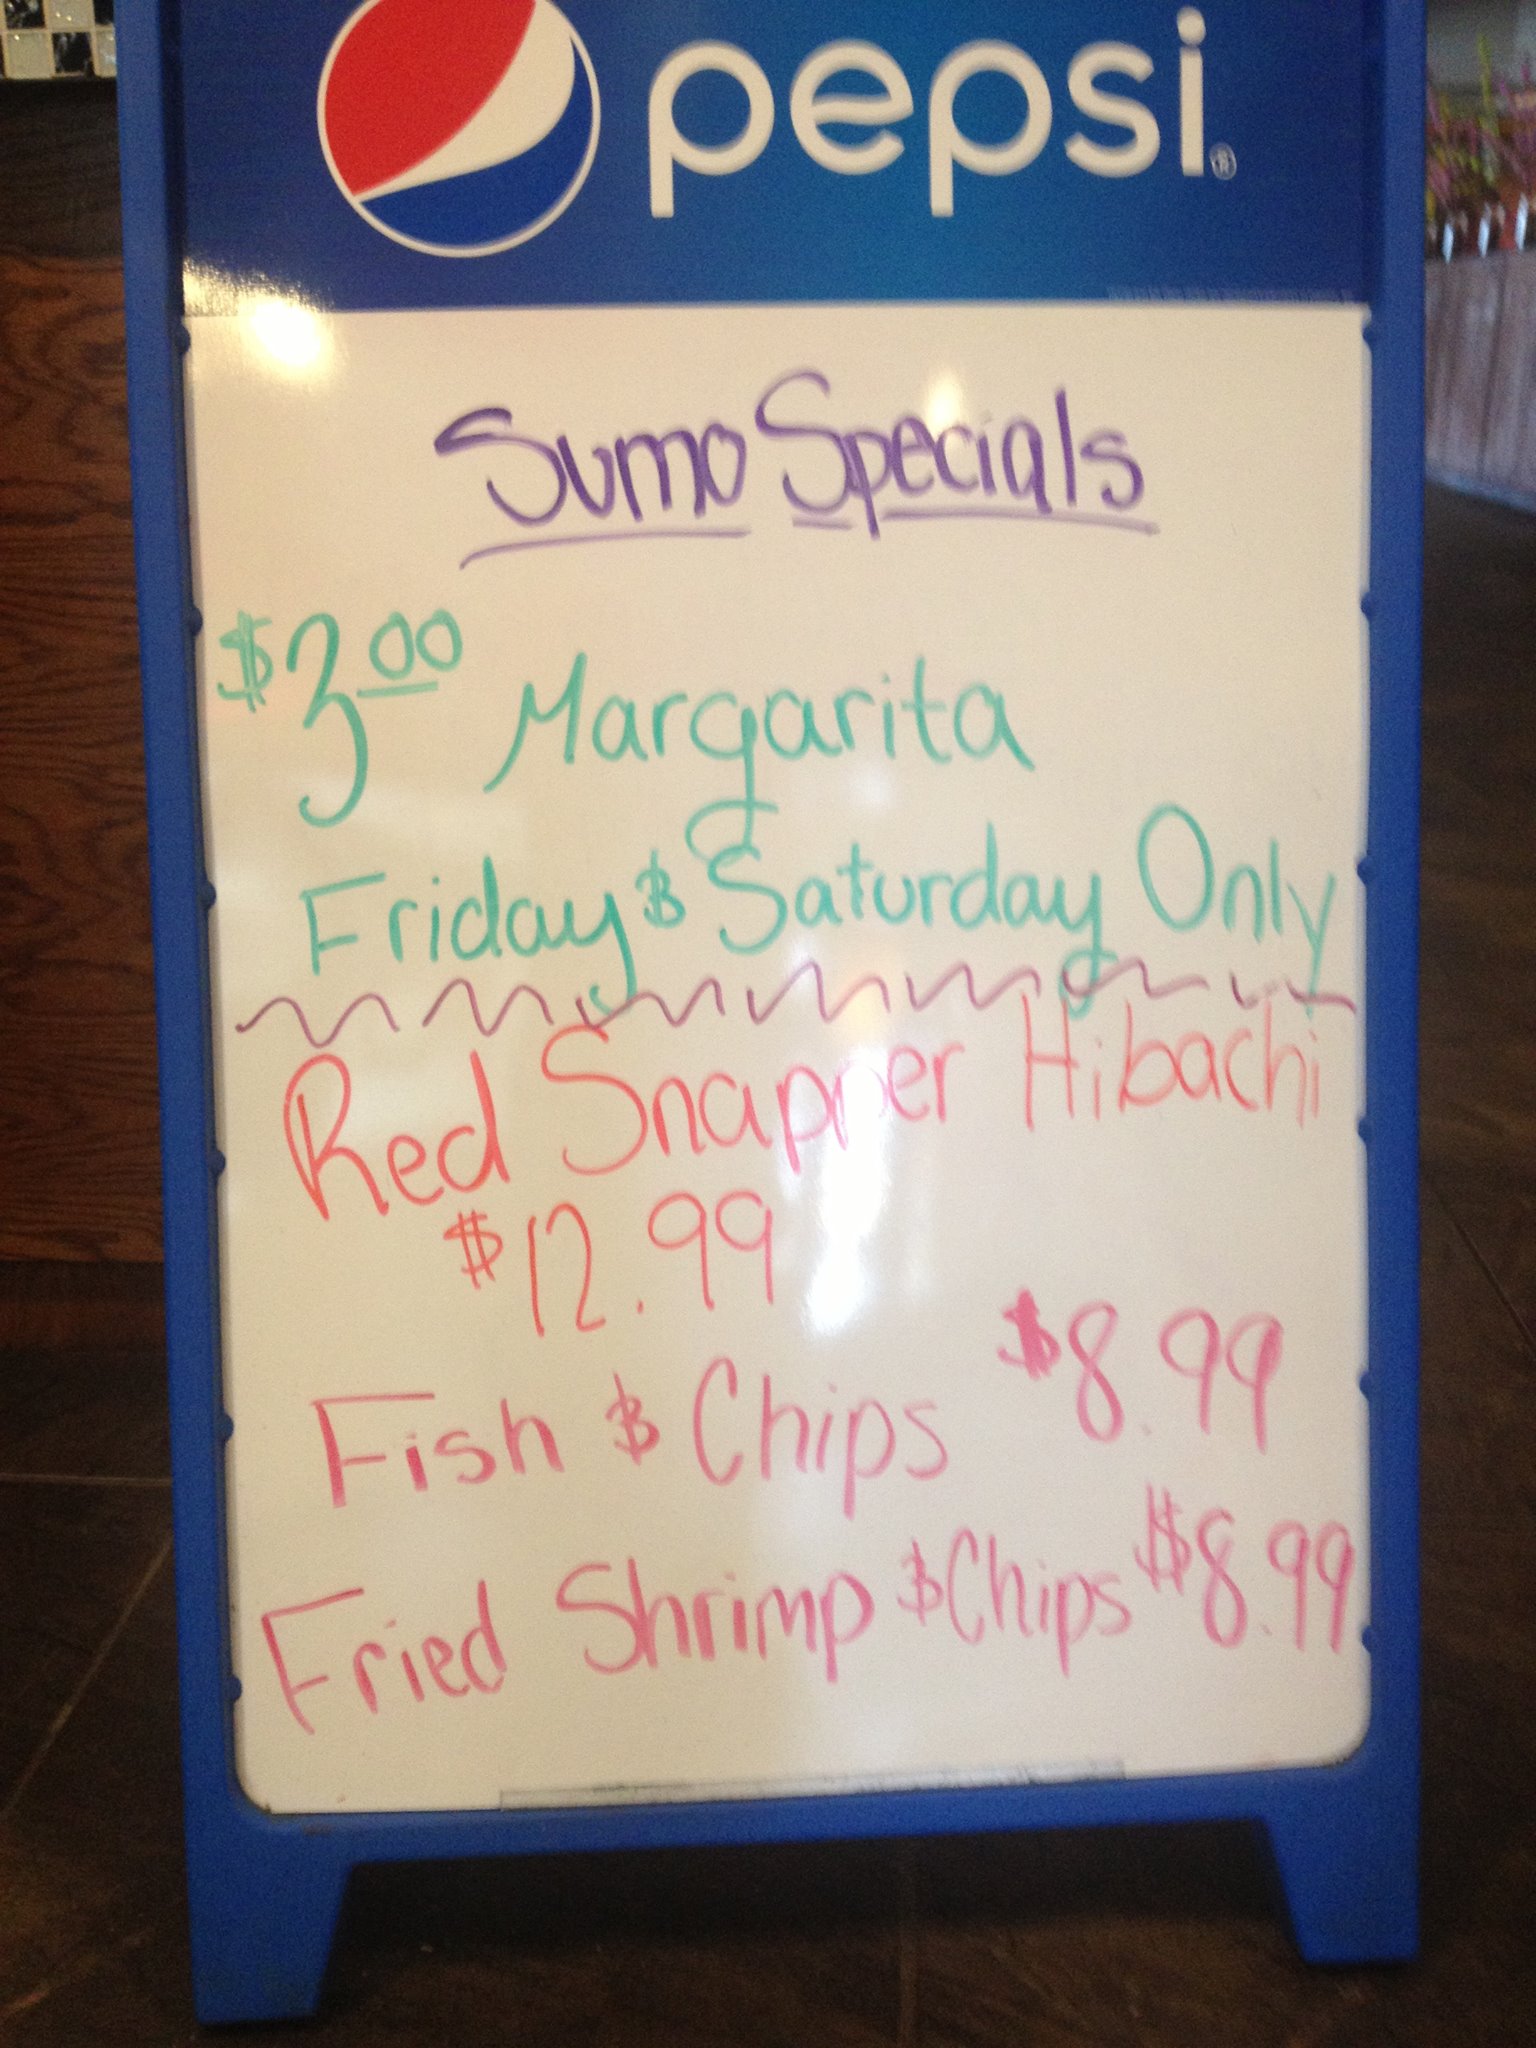 pepsi®
Sumo Specials
$3.00 Margarita
Friday & Saturday Only
Red Snapper Hibachi
$12.99
Fish & Chips $8.99
Fried Shrimp & Chips $8.99